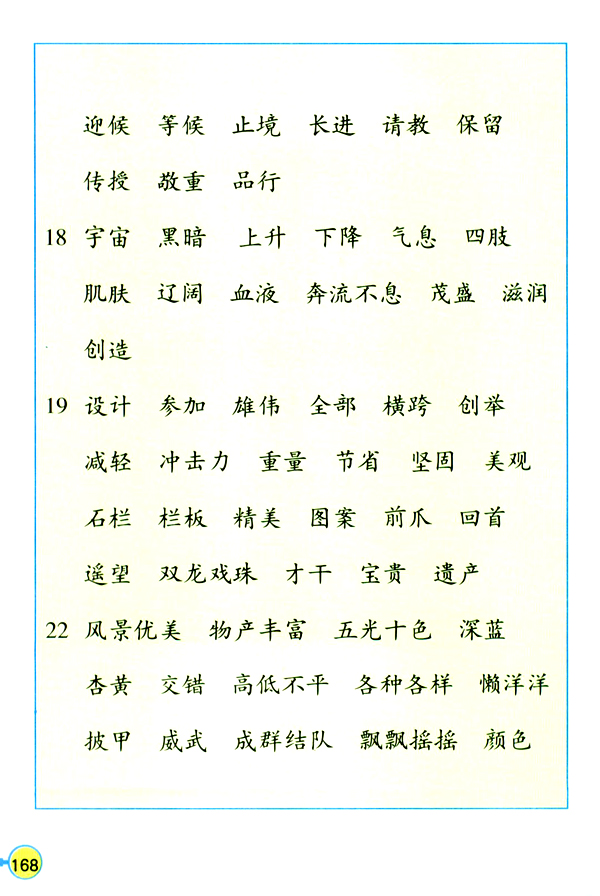 迎候 等候 止境 长进 请教 保留
传授 敬重 品行
18 宇宙 黑暗 上升 下降 气息 四肢
肌肤 辽阔 血液 奔流不息 茂盛 滋润
创造
19 设计 参加 雄伟 全部 横跨 创举
减轻 冲击力 重量 节省 坚固 美观
石栏 栏板 精美 图案 前爪 回首
遥望 双龙戏珠 才干 宝贵 遗产
22 风景优美 物产丰富 五光十色 深蓝
杏黄 交错 高低不平 各种各样 懒洋洋
披甲 威武 成群结队 飘飘摇摇 颜色
168